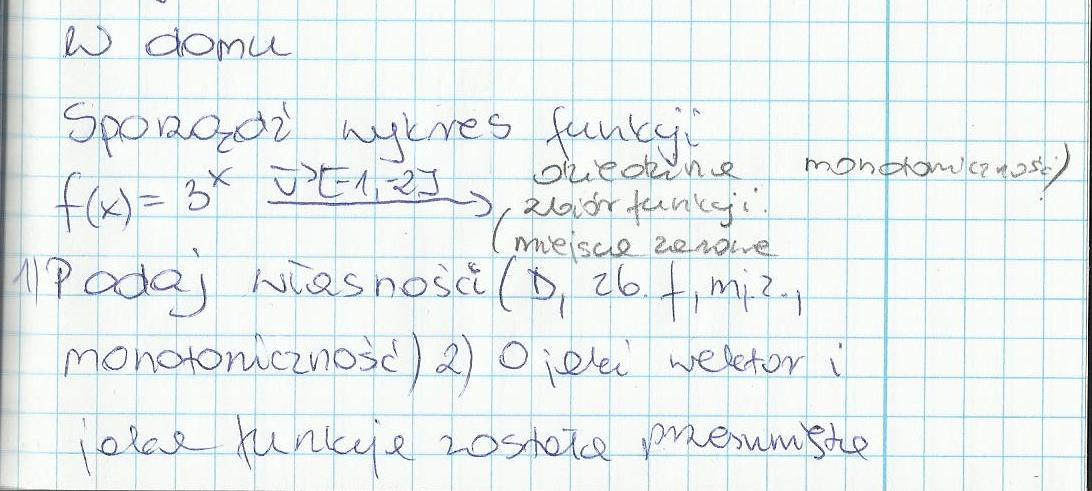 W domu
Sporządź wykres funkcji
f(x) = 3^x v→[-1,-2] →
dziedzina monotoniczność)
zbiór funkcji.
(miejsce zerowe
1) Podaj własności (D, zb. f, mj. z.,
monotoniczność) 2) O jaki wektor i
jaka funkcja została przesunięta